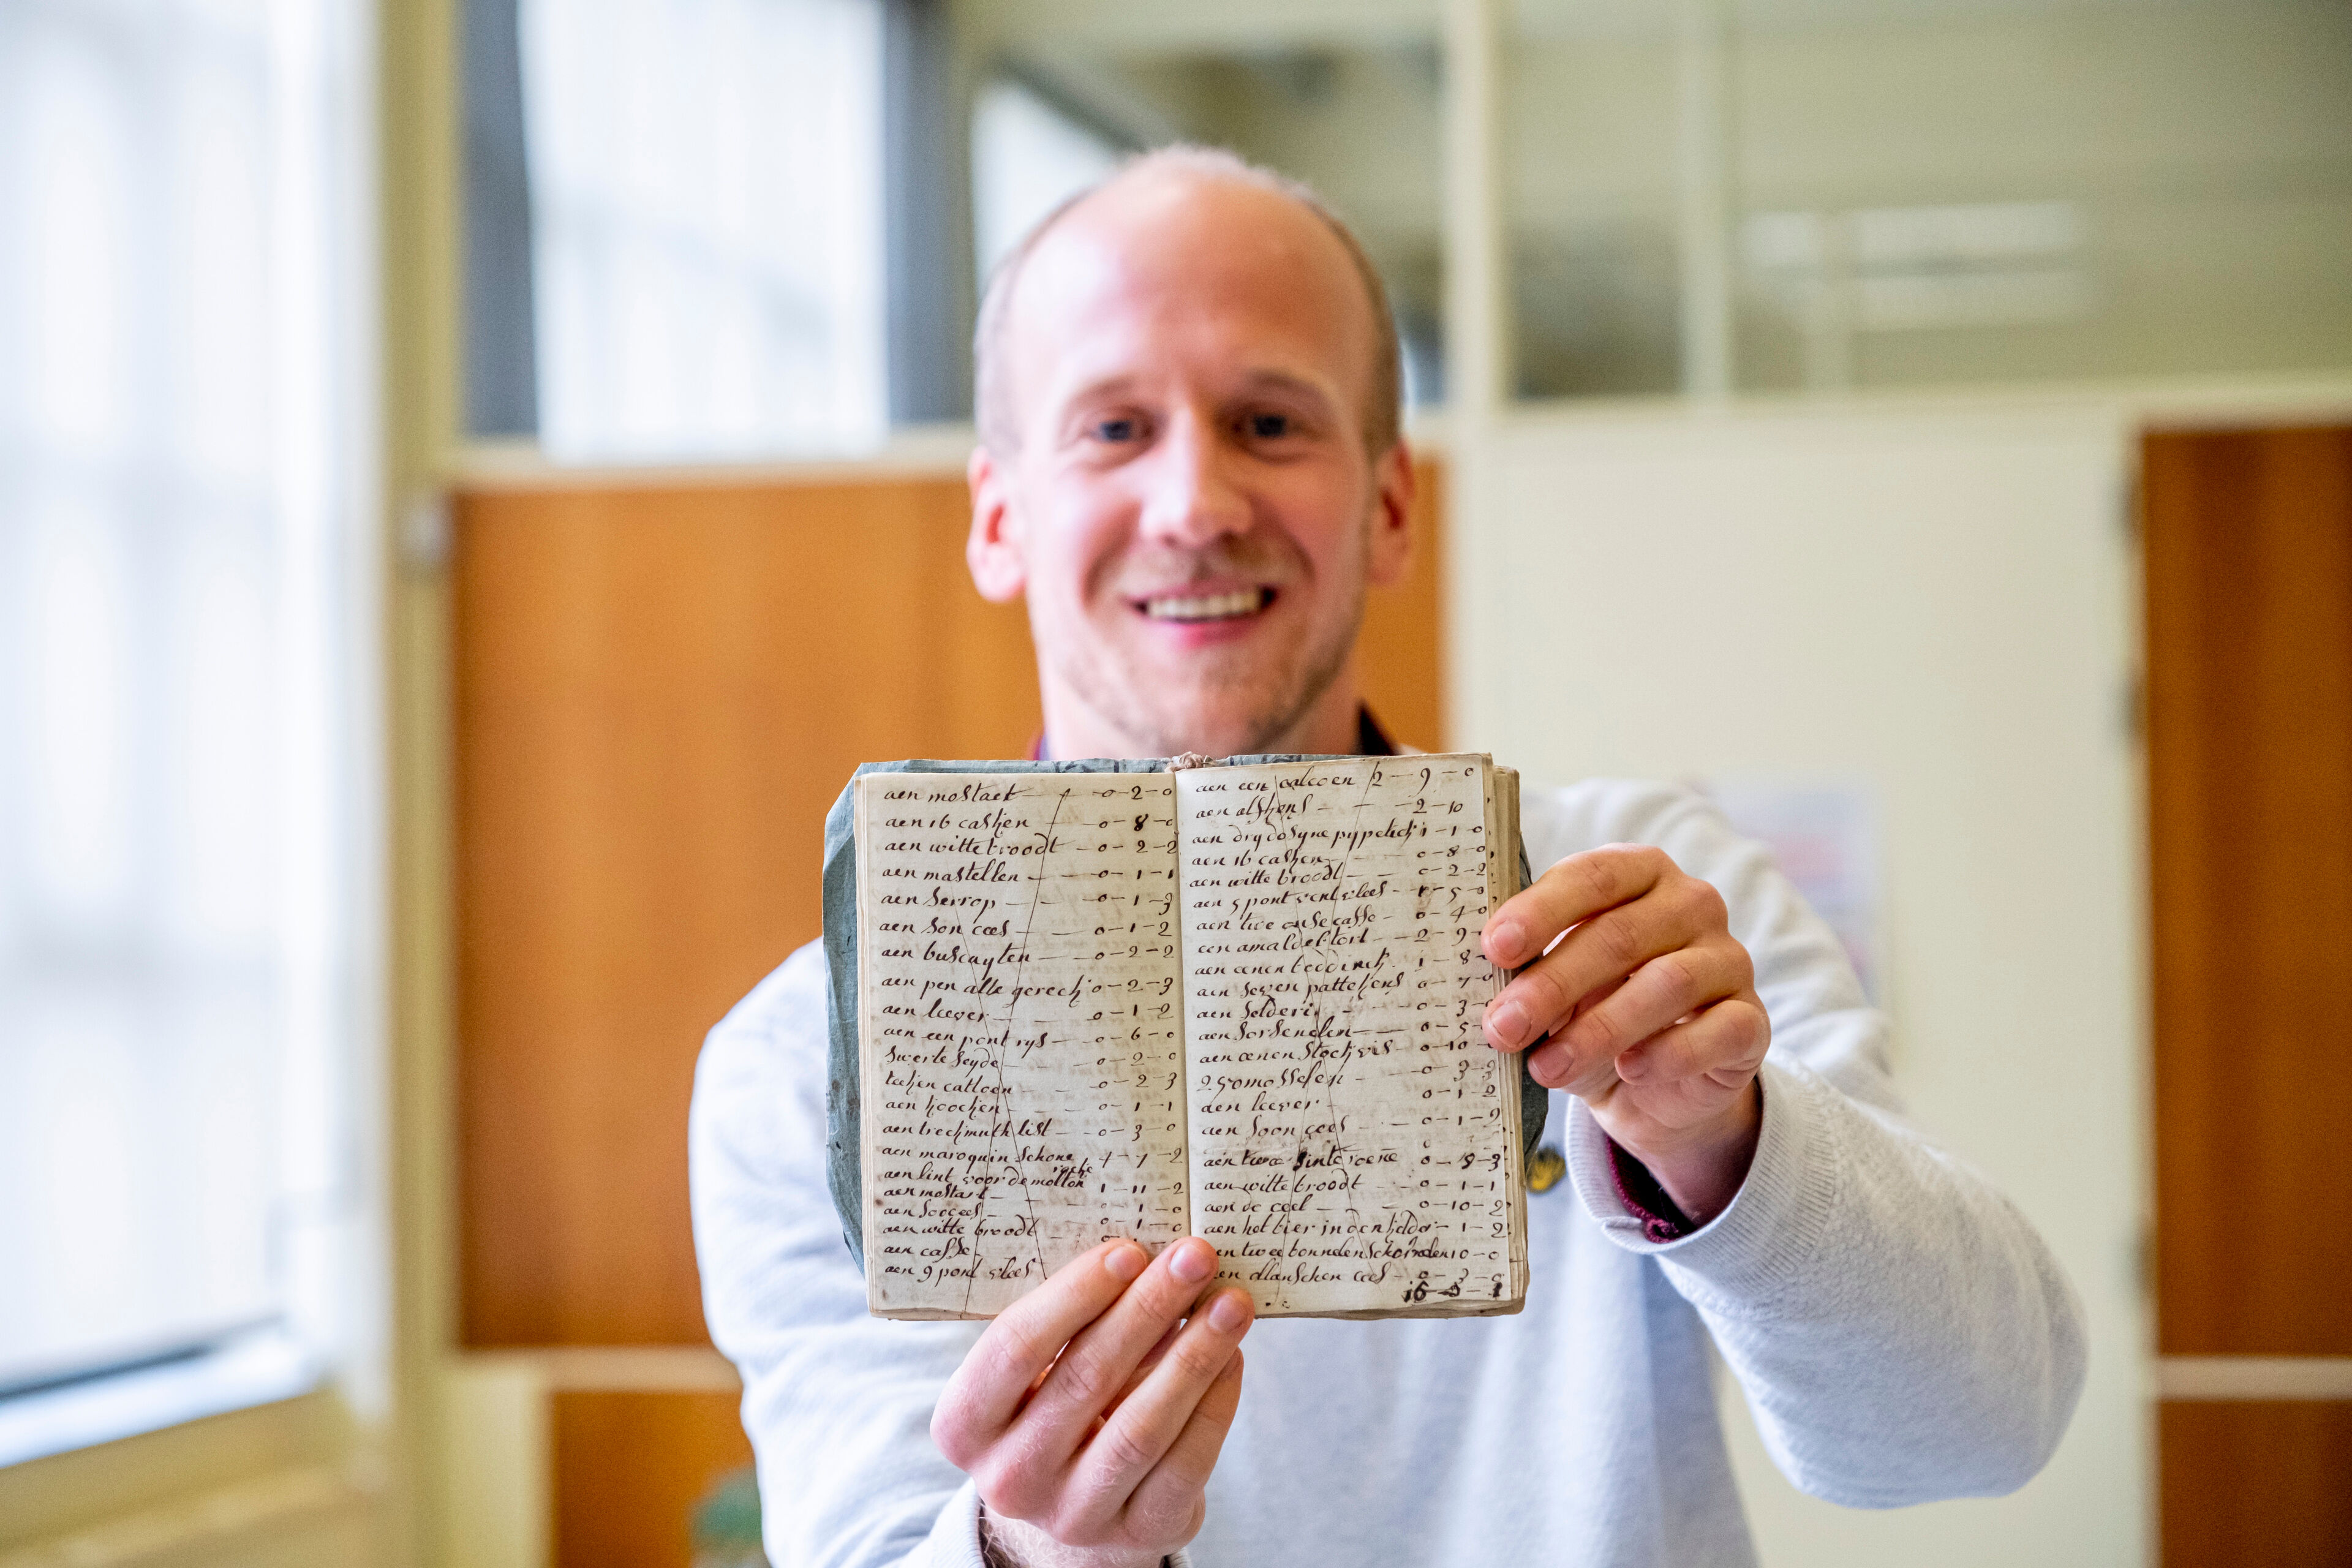 aen mostaet — 0-2-0
aen 16 cashen — 0-8-0
aen witte broodt — 0-2-2
aen mastellen — 0-1-1
aen Serrop — 0-1-3
aen Son cees — 0-1-2
aen buscuyten — 0-2-2
aen pen alle gereck 0-2-3
aen leever — 0-1-2
aen een pont rys — 0-6-0
swerte seyde — 0-2-0
cattoen — 0-2-3
aen koocken — 0-1-1
aen list — 0-3-0
aen maroquin schone 1-7-2
aen lint voor de molton rocke 1-11-2
aen mostart — 1-0
aen — 0-1-0
aen witte broodt
aen caffe
aen 9 pont vlees
aen een calcoen 12-9-0
aen — 2-10
aen dry dosyne 1-1-0
aen 16 cashen — 0-8-0
aen witte broodt — 0-2-2
aen 5 pont vlees 1-5-0
aen twe onse caffe — 0-4-0
een amandel tort — 2-9-
aen eenen 1-8-
aen seven pattekens 0-7-0
aen Selderi — 0-3-
aen Sorsenelen — 0-5-
aen eenen Stockvis 0-10-
mosselen — 0-3-3
aen leever — 0-1-2
aen Soon cees — 0-1-2
aen twee
aen witte broodt — 0-1-1
aen de — 0-10-2
aen het bier in den kelder 1-2
aen twee 10-0
aen cees
16-5-1